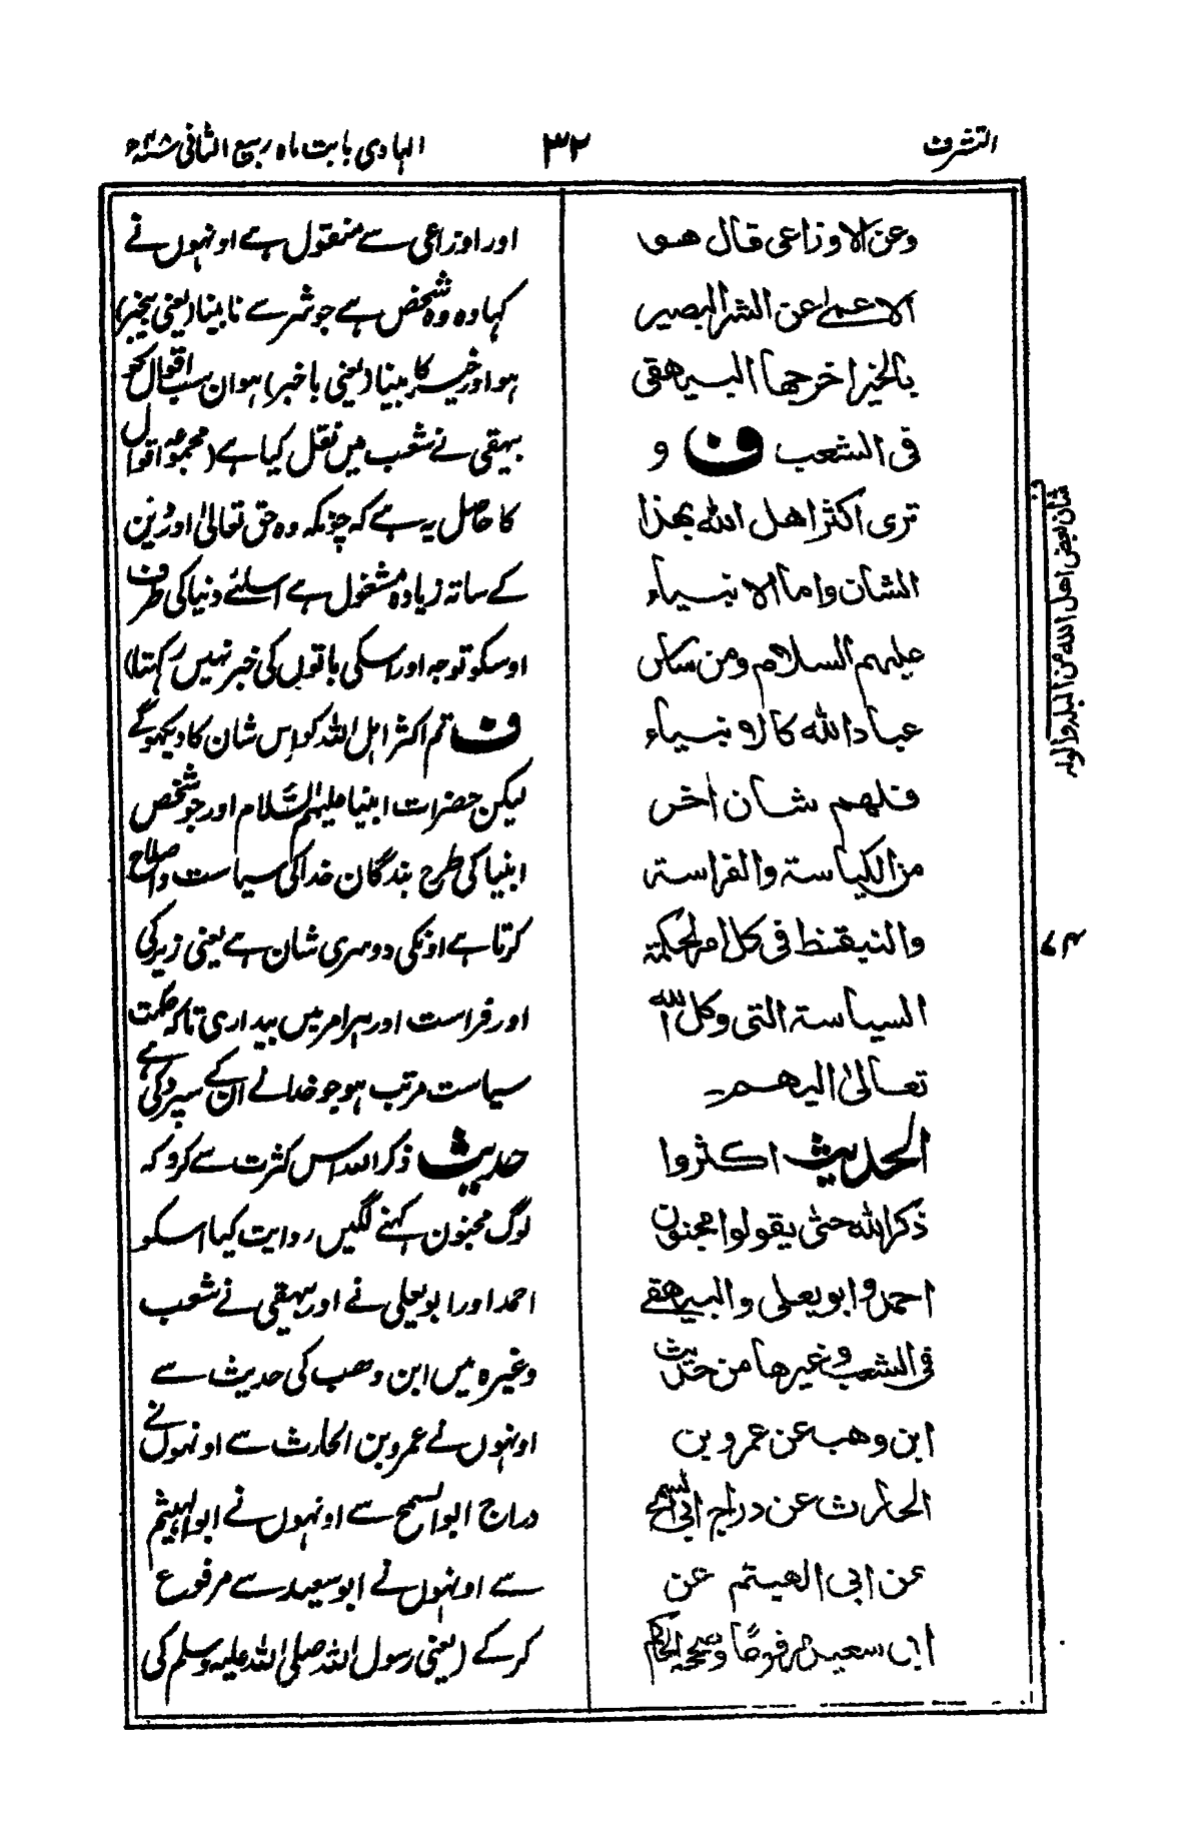 التشرف
۳۲
الہادی بابت ماہ ربیع الثانی
وعن الاوزاعی قال هو
الاعمی عن الشر البصیر
بالخیر اخرجها البیهقی
فی الشعب ف و
تری اکثر اهل الله بهذا
الشان واما الانبیاء
علیهم السلام ومن ساس
عباد الله کالانبیاء
فلهم شان اخر
من الکیاسة والفراسة
والتیقظ فی کل امر لحکمة
السیاسة التی وکل الله
تعالیٰ الیهم۔
الحدیث اکثروا
ذکر الله حتی یقولوا مجنون
احمد وابو یعلی والبیهقی
فی الشعب وغیرها من حدیث
ابن وهب عن عمرو بن
الحارث عن دراج ابی السمح
عن ابی الهیثم عن
ابی سعید مرفوعًا وصححه الحاکم
شان بعض اهل الله من البله والوله
۷۴
اور اوزاعی سے منقول ہے اونہوں نے
کہا وہ وہ شخص ہے جو شر سے نابینا (یعنی بیخبر)
ہو اور خیر کا بینا (یعنی باخبر) ہو ان سب اقوال کو
بیہقی نے شعب میں نقل کیا ہے (مجموعہ اقوال
کا حاصل یہ ہے کہ چونکہ وہ حق تعالیٰ اور دین
کے ساتہ زیادہ مشغول ہے اسلئے دنیا کی طرف
اوسکو توجہ اور اسکی باتوں کی خبر نہیں رکہتا)
ف تم اکثر اہل اللہ کو اس شان کا دیکہوگے
لیکن حضرات انبیا علیہم السّلام اور جو شخص
انبیا کی طرح بندگان خدا کی سیاست و اصلاح
کرتا ہے اونکی دوسری شان ہے یعنی زیرکی
اور فراست اور ہر امر میں بیداری تاکہ حکمت
سیاست مرتب ہو جو خدا نے ان کے سپرد کی ہے
حدیث ذکر اللہ اس کثرت سے کرو کہ
لوگ مجنون کہنے لگیں روایت کیا اسکو
احمد اور ابو یعلی نے اور بیہقی نے شعب
وغیرہ میں ابن وهب کی حدیث سے
اونہوں نے عمرو بن الحارث سے اونہوں نے
دراج ابو السمح سے اونہوں نے ابو الہیثم
سے اونہوں نے ابو سعید سے مرفوع
کر کے (یعنی رسول اللہ صلی اللہ علیہ وسلم کی